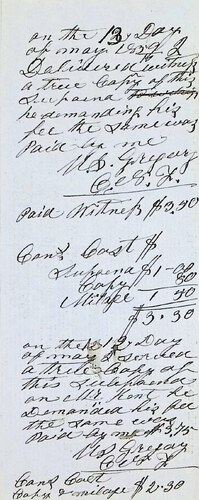 on the 13 Day
of may 1852 I
Delivered witness
a true Copy of this
Supaena
he demanding his
fee the same was
Paid by me
Gregory
C. S. J.
Paid Witness $3.50
Cons Cost $
Suppena $1-00
Copy 80
Milage 1 40
$3.30
on the 12 Day
of may I served
a true Copy of
this Subpaena
on Mr he
Demanded his fee
the same was
Paid by me $ 375
Gregory
C. S. J.
Cons Cost
Copy & milage $2.30